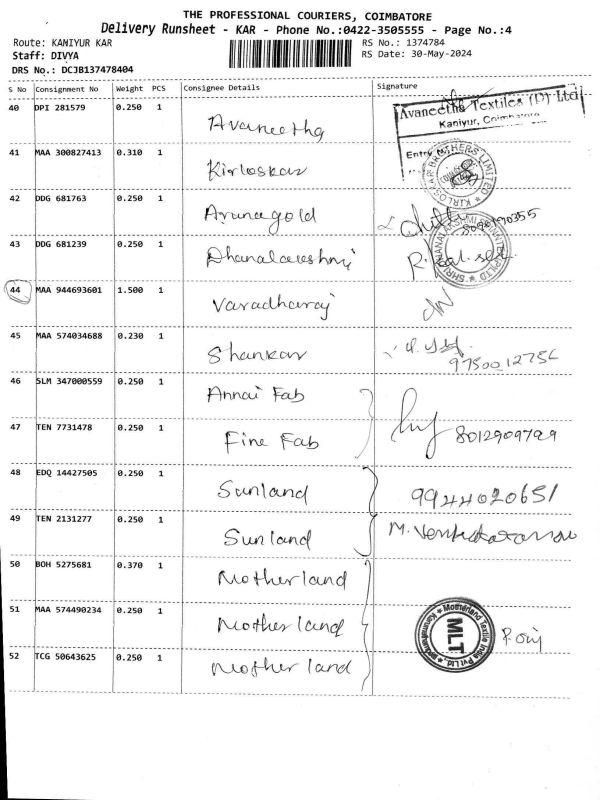 THE PROFESSIONAL COURIERS, COIMBATORE
Delivery Runsheet - KAR - Phone No.:0422-3505555 - Page No.:4
Route: KANIYUR KAR
RS No.: 1374784
Staff: DIVYA
RS Date: 30-May-2024
DRS No.: DCJB137478404
S No Consignment No Weight PCS Consignee Details Signature
40 DPI 281579 0.250 1 Avaneetha
Avaneetha Textiles (P) Ltd
Kaniyur, Coimbatore
Entry
41 MAA 300827413 0.310 1 Kirloskar
KIRLOSKAR BROTHERS LIMITED
42 DDG 681763 0.250 1 Arunagold
43 DDG 681239 0.250 1 Dhanalakshmi
44 MAA 944693601 1.500 1 Varadharaj
45 MAA 574034688 0.230 1 Shankar
46 SLM 347000559 0.250 1 Annai Fab
47 TEN 7731478 0.250 1 Fine Fab 8012909729
48 EDQ 14427505 0.250 1 Sunland 9944020651
49 TEN 2131277 0.250 1 Sunland
50 BOH 5275681 0.370 1 Motherland
51 MAA 574490234 0.250 1 Motherland
Motherland Textile India Pvt Ltd
MLT
52 TCG 50643625 0.250 1 Motherland